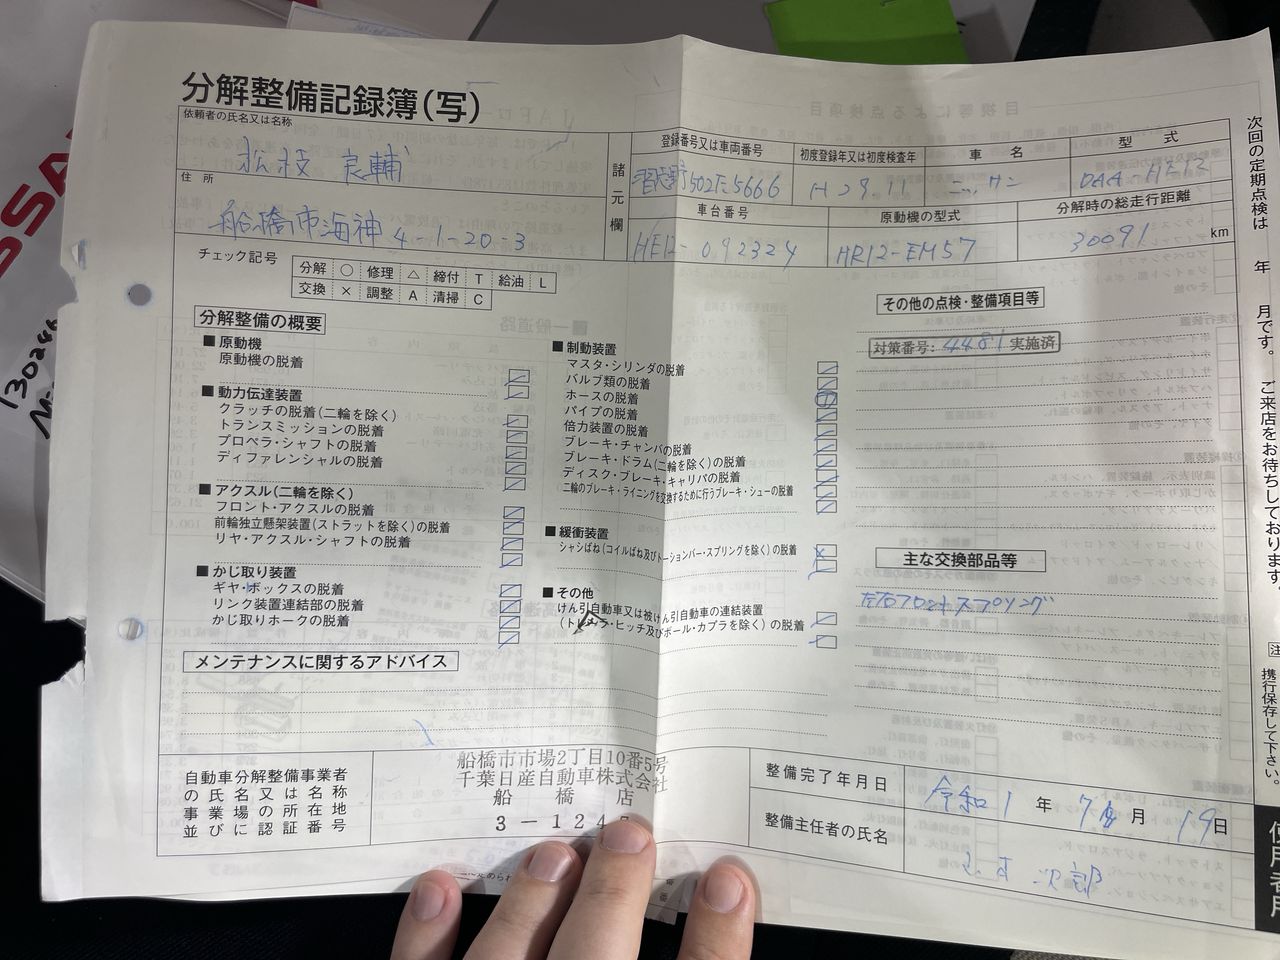 分解整備記録簿(写)
依頼者の氏名又は名称
松枝 良輔
住所
船橋市海神4-1-20-3
諸元欄
登録番号又は車両番号
習志野502 5666
初度登録年又は初度検査年
H29.11
車名
ニッサン
型式
DAA-HE12
車台番号
HE12-092324
原動機の型式
HR12-EM57
分解時の総走行距離
30091 km
チェック記号
分解 ○ 修理 △ 締付 T 給油 L
交換 × 調整 A 清掃 C
分解整備の概要
■原動機
原動機の脱着
■動力伝達装置
クラッチの脱着(二輪を除く)
トランスミッションの脱着
プロペラ・シャフトの脱着
ディファレンシャルの脱着
■アクスル(二輪を除く)
フロント・アクスルの脱着
前輪独立懸架装置(ストラットを除く)の脱着
リヤ・アクスル・シャフトの脱着
■かじ取り装置
ギヤ・ボックスの脱着
リンク装置連結部の脱着
かじ取りホークの脱着
■制動装置
マスタ・シリンダの脱着
バルブ類の脱着
ホースの脱着
パイプの脱着
倍力装置の脱着
ブレーキ・チャンバの脱着
ブレーキ・ドラム(二輪を除く)の脱着
ディスク・ブレーキ・キャリパの脱着
二輪のブレーキ・ライニングを交換するために行うブレーキ・シューの脱着
■緩衝装置
シャシばね(コイルばね及びトーションバー・スプリングを除く)の脱着
■その他
けん引自動車又は被けん引自動車の連結装置
(トレーラ・ヒッチ及びボール・カプラを除く)の脱着
その他の点検・整備項目等
対策番号:4481実施済
主な交換部品等
左右フロントスプリング
メンテナンスに関するアドバイス
自動車分解整備事業者
の氏名又は名称
事業場の所在地
並びに認証番号
船橋市市場2丁目10番5号
千葉日産自動車株式会社
船橋店
3-124
整備完了年月日
令和1年7月19日
整備主任者の氏名
次郎
次回の定期点検は 年 月です。 ご来店をお待ちしております。
注 携行保存して下さい。
使用者用
130244